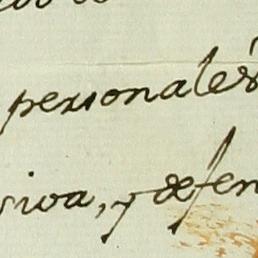 personales
siva, y defen